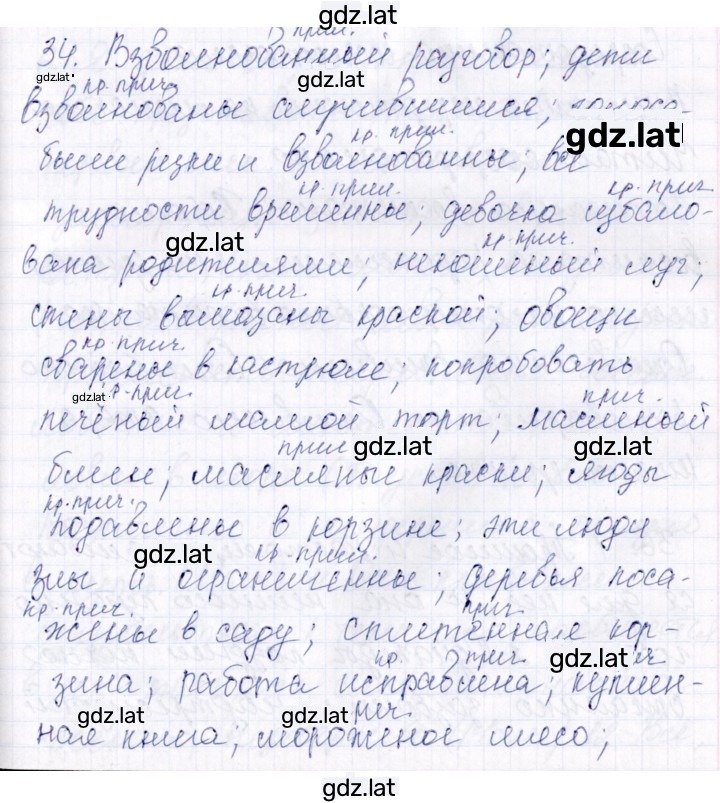 gdz.lat
прил.
34. Взволнованный разговор; дети
gdz.lat
gdz.lat
кр. прич.
взволнованы случившимся;
gdz.lat
кр. прил.
были резки и взволнованны; все
кр. прил. кр. прич
трудности временны; девочка избало-
gdz.lat
кр. прич.
вана родителями; некошеный луг;
кр. прич.
стены вымазаны краской; овощи
кр. прич.
сварены в кастрюле; попробовать
gdz.lat
р-прич. прич.
печёный мамой торт; масленый
прил gdz.lat gdz.lat
блин; масляные краски; ягоды
кр. прич.
подавлены в корзине; эти люди
gdz.lat
кр. прил.
злы и ограниченны; деревья поса-
кр. прич. прич.
жены в саду; сплетённая кор-
кр прич. gdz.lat ич
зина; работа исправлена; куплен-
gdz.lat gdz.lat рич.
ная книга; мороженое мясо;
gdz.lat